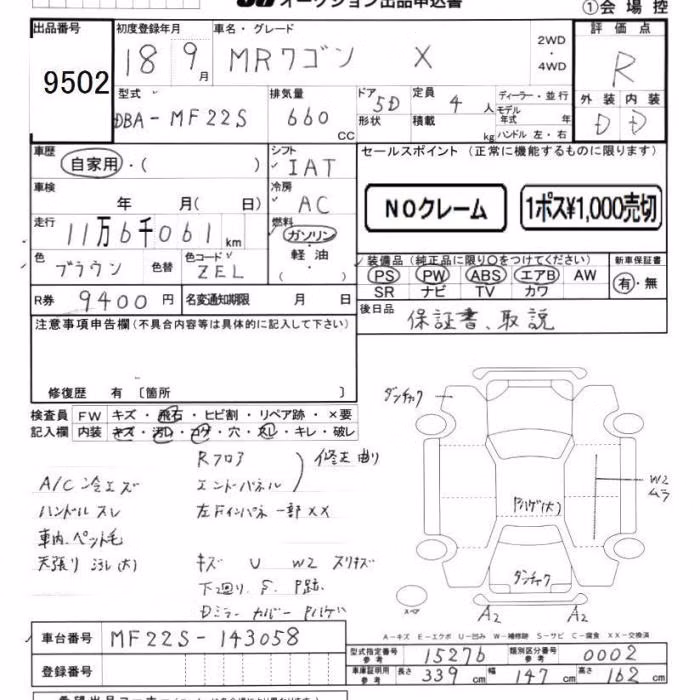 オークション出品申込書
①会場控
出品番号
9502
初度登録年月
18 9月
車名・グレード
MRワゴン X
2WD
・
4WD
評価点
R
外装 内装
D D
型式
DBA-MF22S
排気量
660 CC
ドア
5D
形状
定員
4人
積載
kg
ディーラー・並行
モデル年式 年
ハンドル 左・右
車歴
自家用・( )
シフト
IAT
セールスポイント (正常に機能するものに限ります)
NOクレーム
1ポス¥1,000売切
車検
年 月( 日)
冷房
AC
走行
11万6千061km
燃料
ガソリン
・
軽油
色
ブラウン
色替
色コード
ZEL
装備品 (純正品に限り○をつけてください)
PS PW ABS エアB AW
SR ナビ TV カワ
新車保証書
有・無
R券
9400円
名変通知期限 月 日
後日品
保証書、取説
注意事項申告欄(不具合内容等は具体的に記入して下さい)
修復歴 有 〔箇所 〕
検査員
記入欄
FW キズ・飛石・ヒビ割・リペア跡・×要
内装 キズ・汚レ・コゲ・穴・スレ・キレ・破レ
Rフロア
エンドパネル
修正曲り
A/C 冷エズ
ハンドル スレ
左Fインパネ一部XX
車内、ペット毛
天張り ヨゴレ(大)
キズ U W2 スリキズ
下廻り、S、P跡、
Dミラー カバー Pハゲ
ダンチャク
W2
ムラ
Pハゲ(大)
ダンチャク
スペア
A2 A2
A-キズ E-エクボ U-凹み W-補修跡 S-サビ C-腐食 XX-交換済
車台番号
MF22S-143058
登録番号
型式指定番号
参考
15276
類別区分番号
参考
0002
車庫証明用
参考
長さ
339cm
幅
147cm
高さ
162cm